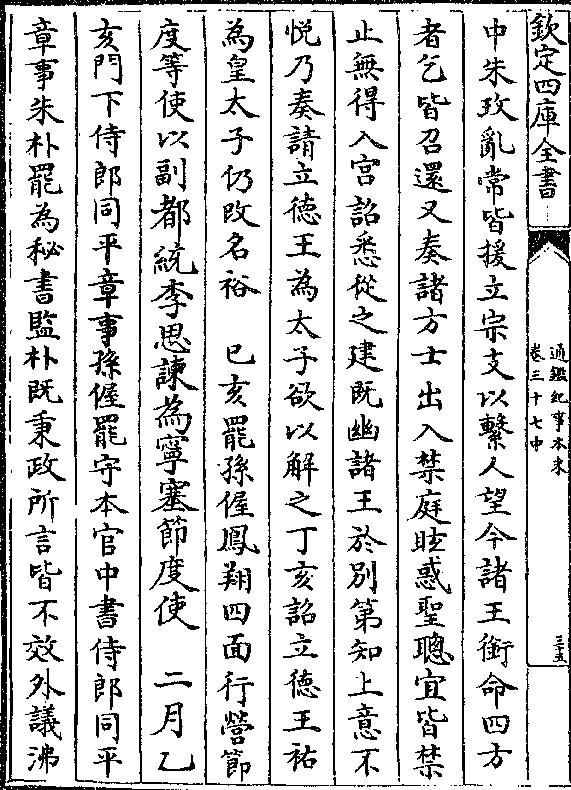 欽定四庫全書
通鑑紀事本末
卷三十七中
三十五
中朱玫亂常皆援立宗支以繫人望今諸王銜命四方
者乞皆召還又奏諸方士出入禁庭眩惑聖聰宜皆禁
止無得入宫詔悉從之建既幽諸王於別第知上意不
悦乃奏請立徳王為太子欲以解之丁亥詔立徳王祐
為皇太子仍改名裕 已亥罷孫偓鳳翔四面行營節
度等使以副都統李思諫為寧塞節度使 二月乙
亥門下侍郎同平章事孫偓罷守本官中書侍郎同平
章事朱朴罷為秘書監朴既秉政所言皆不效外議沸